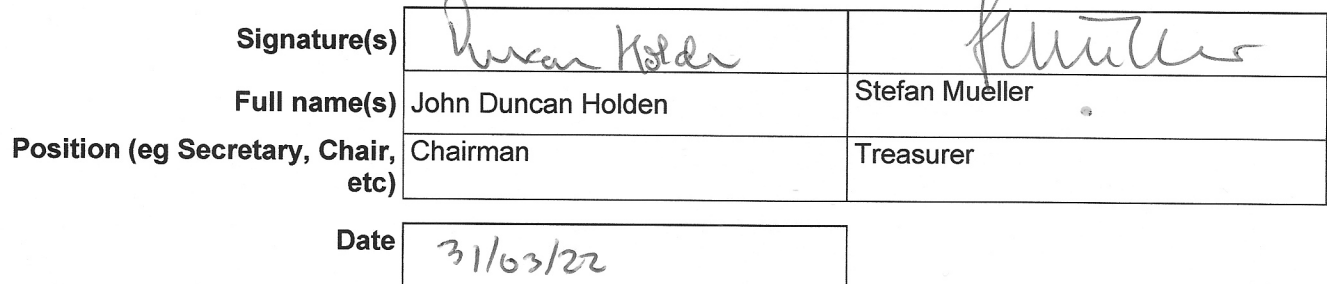 Signature(s) Duncan Holden SMüller
Full name(s) John Duncan Holden Stefan Mueller
Position (eg Secretary, Chair, Chairman Treasurer
etc)
Date 31/03/22